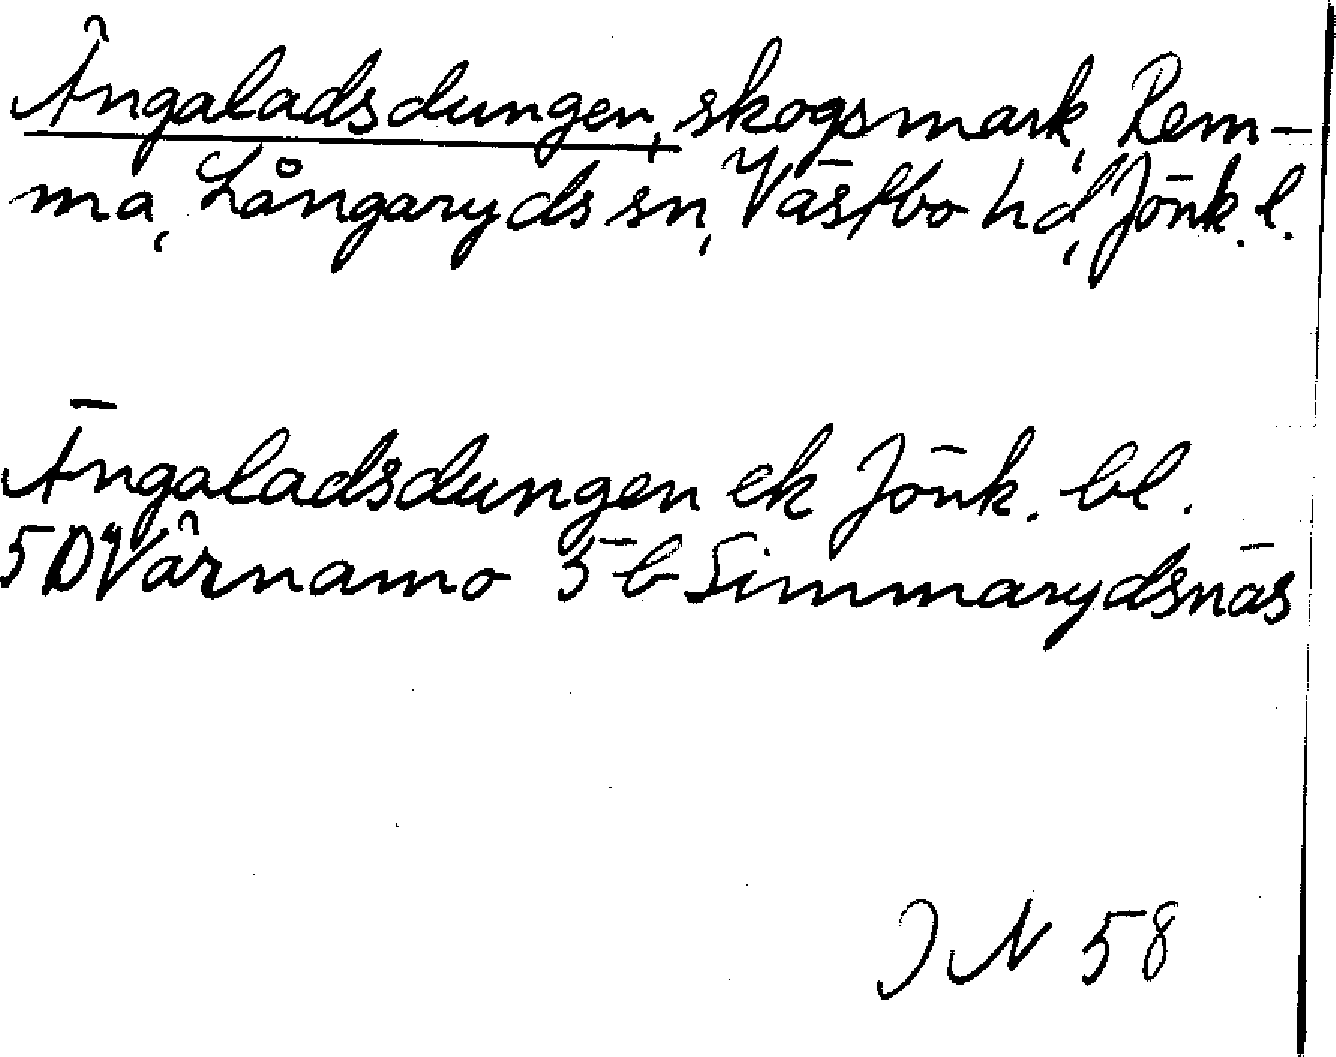 Ängaladsdungen, skogsmark, Rem-
ma, Långaryds sn, Västbo hd, Jönk. l.
Ängaladsdungen ek Jönk. bl.
5D Värnamo 5b Simmarydsnäs
JN 58